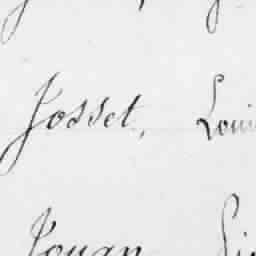 Josset, Loui
Jouan